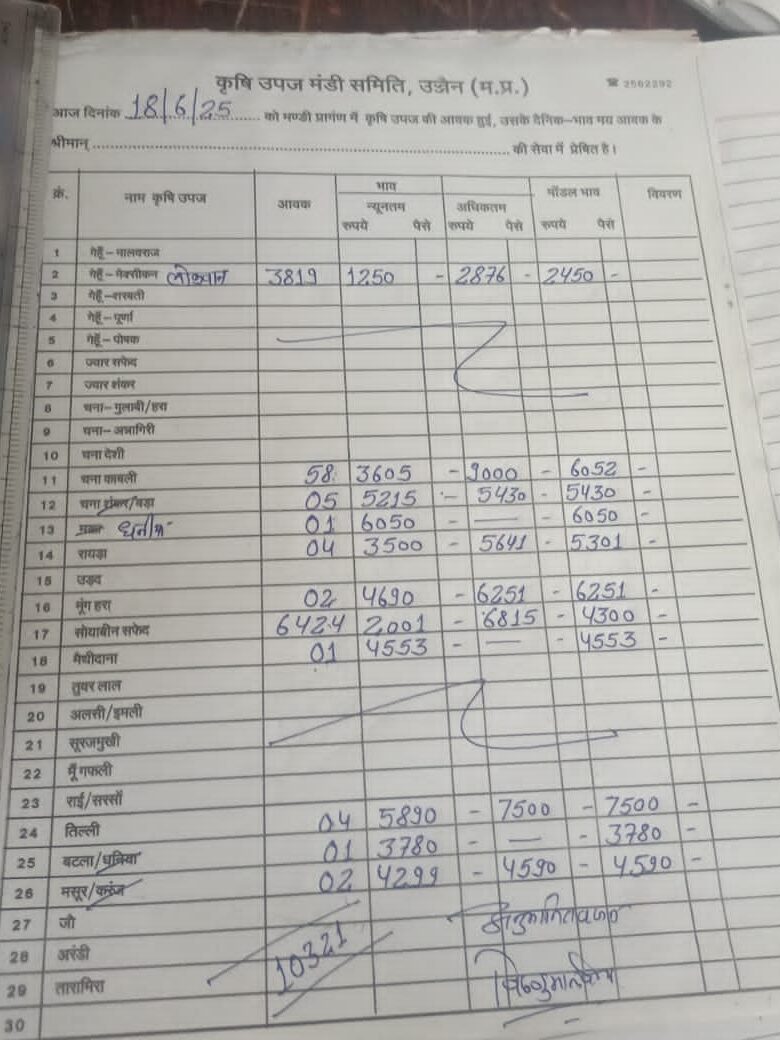 कृषि उपज मंडी समिति, उज्जैन (म.प्र.) ☎ 2562292
आज दिनांक 18/6/25 को मण्डी प्रागंण में कृषि उपज की आवक हुई, उसके दैनिक-भाव मय आवक के
श्रीमान् की सेवा में प्रेषित है।
क्रं. नाम कृषि उपज आवक भाव मॉडल भाव विवरण
न्यूनतम अधिकतम
रुपये पैसे रुपये पैसे रुपये पैसे
1 गेहूँ-मालवराज
2 गेहूँ-मेक्सीकन लोकवान 3819 1250 - 2876 - 2450 -
3 गेहूँ-शरबती
4 गेहूँ-पूर्णा
5 गेहूँ-पोषक
6 ज्वार सफेद
7 ज्वार शंकर
8 चना-गुलाबी/हरा
9 चना-अन्नागिरी
10 चना देशी
11 चना काबली 58 3605 - 9000 - 6052 -
12 चना शंकर/बड़ा 05 5215 - 5430 - 5430 -
13 मक्का धनिया 01 6050 - — - 6050 -
14 रायड़ा 04 3500 - 5641 - 5301 -
15 उड़द
16 मूंग हरा 02 4690 - 6251 - 6251 -
17 सोयाबीन सफेद 6424 2001 - 6815 - 4300 -
18 मैथीदाना 01 4553 - — - 4553 -
19 तुवर लाल
20 अलसी/इमली
21 सूरजमुखी
22 मूँगफली
23 राई/सरसों
24 तिल्ली 04 5890 - 7500 - 7500 -
25 बटला/धनिया 01 3780 - — - 3780 -
26 मसूर/करंज 02 4299 - 4590 - 4590 -
27 जौ
28 अरंडी 10321
29 तारामिरा
30